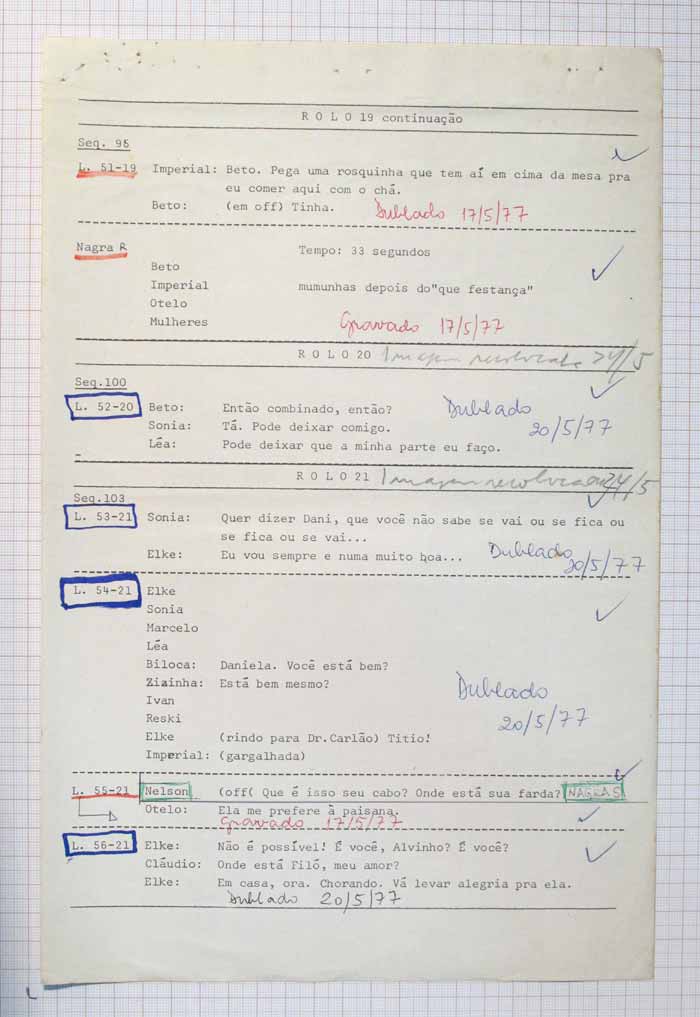 R O L O 19 continuação
Seq. 95
L. 51-19 Imperial: Beto. Pega uma rosquinha que tem aí em cima da mesa pra
eu comer aqui com o chá.
Beto: (em off) Tinha. Dublado 17/5/77
Nagra R Tempo: 33 segundos
Beto
Imperial mumunhas depois do"que festança"
Otelo
Mulheres Gravado 17/5/77
R O L O 20 Imagem 24/5
Seq.100
L. 52-20 Beto: Então combinado, então? Dublado
Sonia: Tá. Pode deixar comigo. 20/5/77
Léa: Pode deixar que a minha parte eu faço.
R O L O 21 Imagem 24/5
Seq.103
L. 53-21 Sonia: Quer dizer Dani, que você não sabe se vai ou se fica ou
se fica ou se vai...
Elke: Eu vou sempre e numa muito boa... Dublado 20/5/77
L. 54-21 Elke
Sonia
Marcelo
Léa
Biloca: Daniela. Você está bem?
Zizinha: Está bem mesmo? Dublado
Ivan
Reski 20/5/77
Elke (rindo para Dr.Carlão) Titio!
Imperial: (gargalhada)
L. 55-21 Nelson (off( Que é isso seu cabo? Onde está sua farda? NAGRA S
Otelo: Ela me prefere à paisana.
Gravado 17/5/77
L. 56-21 Elke: Não é possível! É você, Alvinho? É você?
Cláudio: Onde está Filó, meu amor?
Elke: Em casa, ora. Chorando. Vá levar alegria pra ela.
Dublado 20/5/77